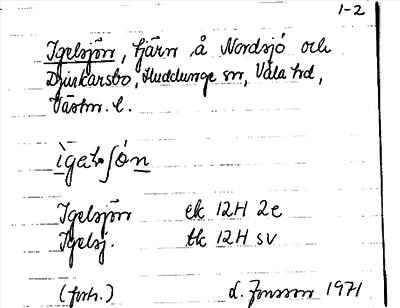 1-2
Igelsjön, tjärn å Nordsjö och
Djuskarsbo, Huddunge sn, Våla hd,
Västm. l.
Igelsjön ek 12H 2e
Igelsj. tk 12H SV
(forts.) L. Jonsson 1971